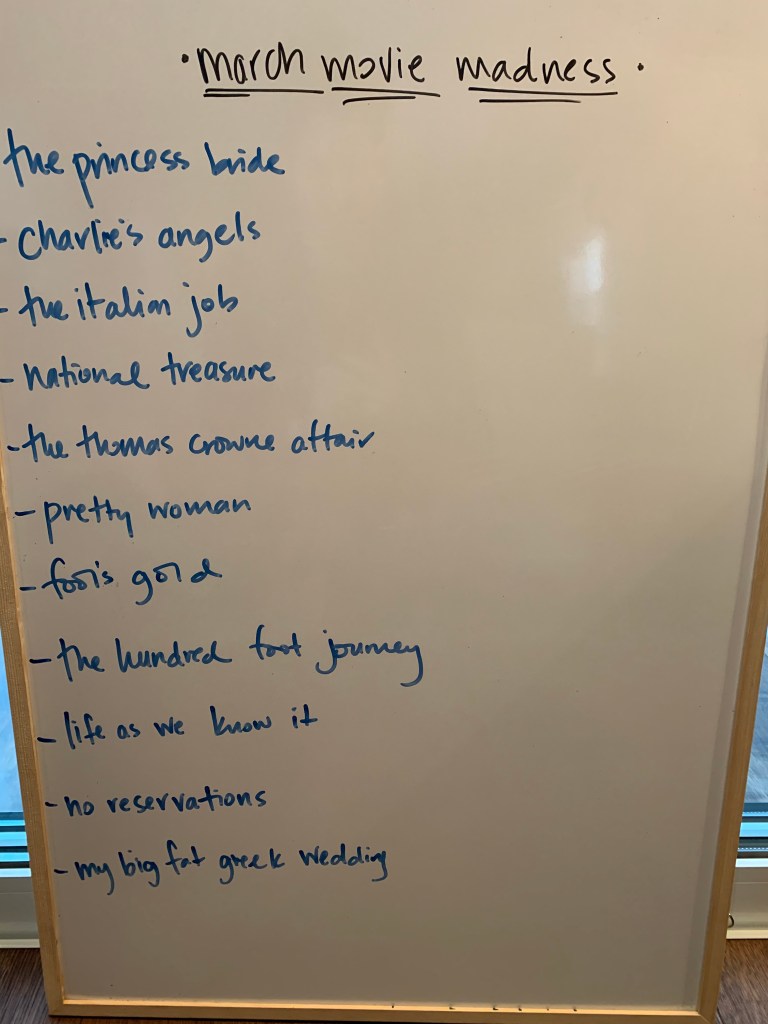 • march movie madness •
the princess bride
- Charlie's angels
- the italian job
- national treasure
- the thomas crowne affair
- pretty woman
- fool's gold
- the hundred foot journey
- life as we know it
- no reservations
- my big fat greek wedding